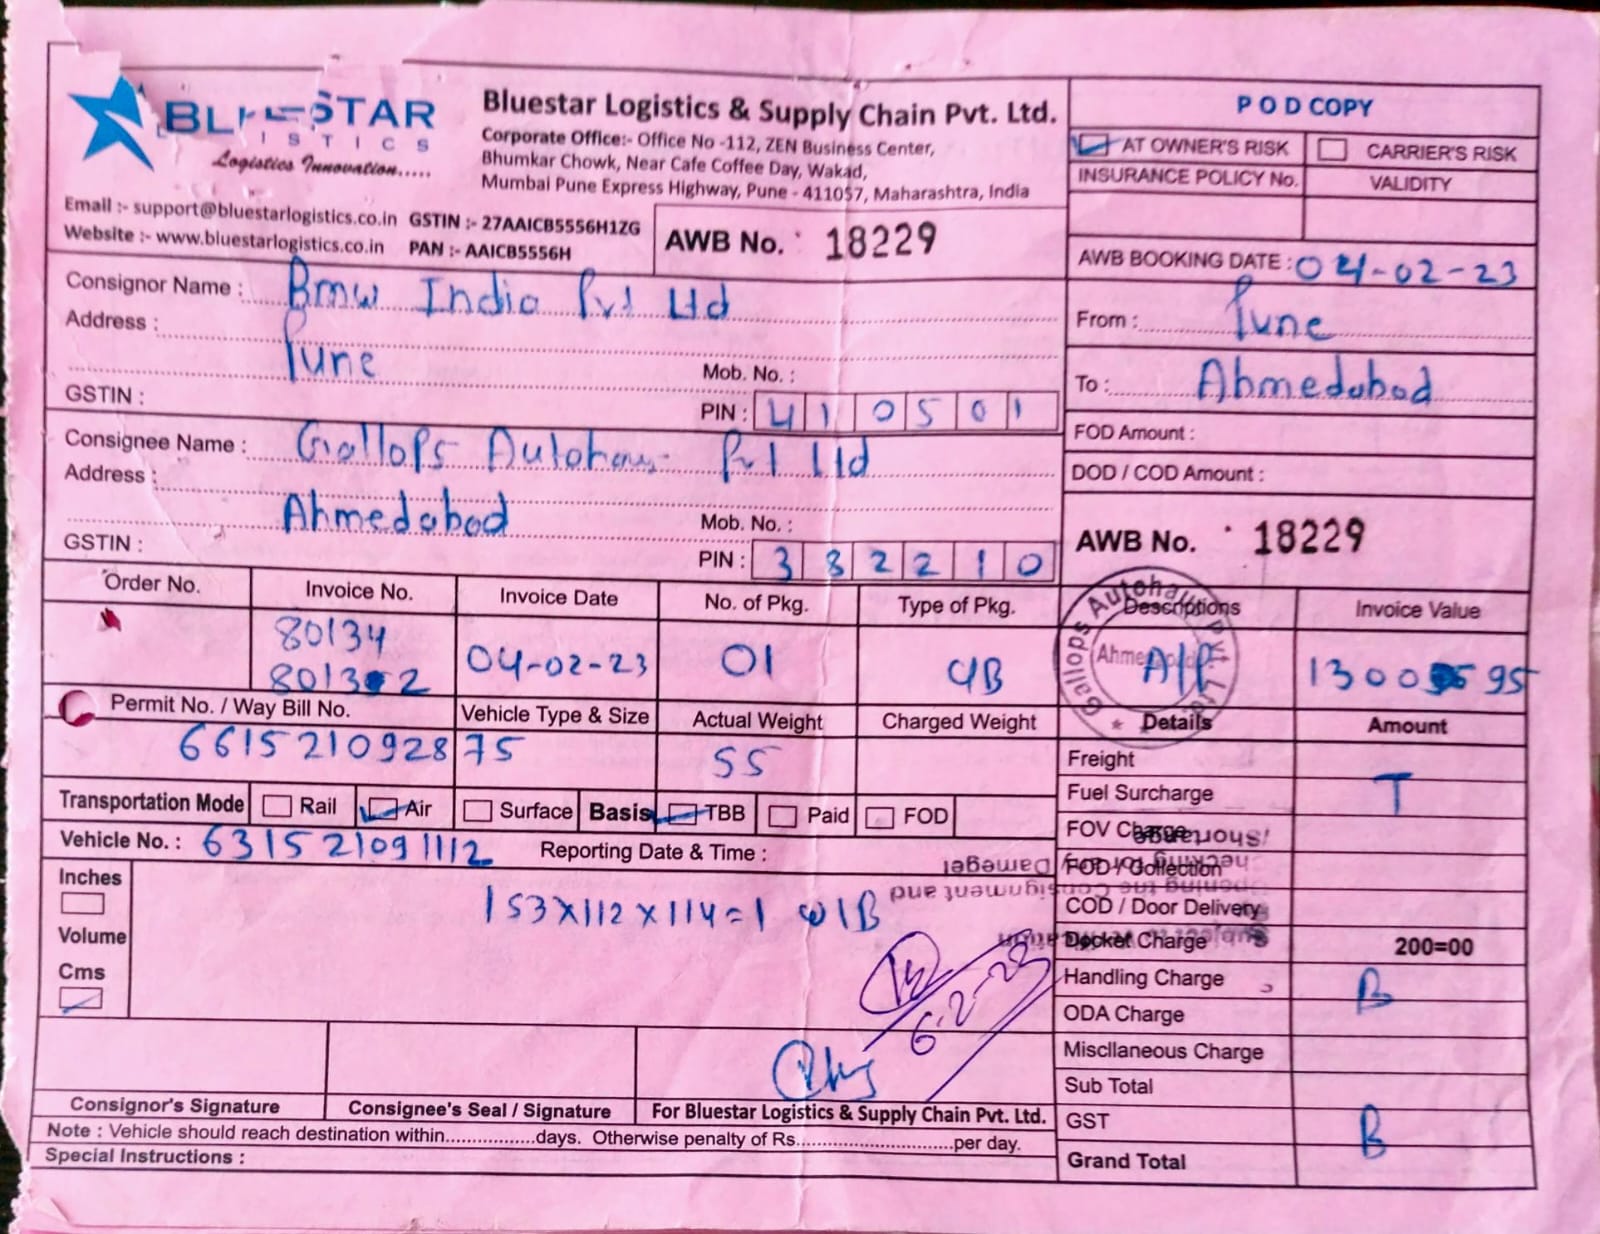 BLUESTAR
ISTICS
Logistics Innovation.....
Bluestar Logistics & Supply Chain Pvt. Ltd.
Corporate Office:- Office No -112, ZEN Business Center,
Bhumkar Chowk, Near Cafe Coffee Day, Wakad,
Mumbai Pune Express Highway, Pune - 411057, Maharashtra, India
Email :- support@bluestarlogistics.co.in GSTIN :- 27AAICB5556H1ZG
Website :- www.bluestarlogistics.co.in PAN :- AAICB5556H
AWB No. 18229
POD COPY
AT OWNER'S RISK CARRIER'S RISK
INSURANCE POLICY No. VALIDITY
AWB BOOKING DATE : 04-02-23
From : Pune
To : Ahmedabad
FOD Amount :
DOD / COD Amount :
AWB No. 18229
Consignor Name : Bmw India Pvt Ltd
Address :
Pune Mob. No. :
GSTIN : PIN : 410501
Consignee Name : Gallops Autohaus Pvt Ltd
Address :
Ahmedabad Mob. No. :
GSTIN : PIN : 382210
Order No. Invoice No. Invoice Date No. of Pkg. Type of Pkg. Descriptions Invoice Value
80134
80132 04-02-23 01 A/P
Gallops Autohaus Pvt. Ltd.
Permit No. / Way Bill No. Vehicle Type & Size Actual Weight Charged Weight Details Amount
661521092875 55
Transportation Mode Rail Air Surface Basis TBB Paid FOD
Vehicle No. : 631521091112 Reporting Date & Time :
Inches
Volume
Cms
153x112x114=1 W/B
6-2-23
Freight
Fuel Surcharge T
FOV Charge
FOD / Collection
COD / Door Delivery
Docket Charge 200=00
Handling Charge B
ODA Charge
Miscllaneous Charge
Sub Total
GST B
Grand Total
Consignor's Signature Consignee's Seal / Signature For Bluestar Logistics & Supply Chain Pvt. Ltd.
Note : Vehicle should reach destination within.................days. Otherwise penalty of Rs...........................per day.
Special Instructions :